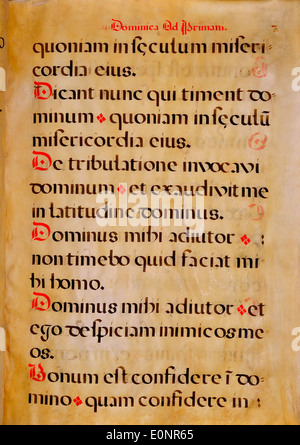 Dominica Ad Primam.
quoniam in sęculum miseri-
cordia eius.
Dicant nunc qui timent do-
minum ❖ quoniam in sęculū
misericordia eius.
De tribulatione invocavi
dominum ❖ et exaudivit me
in latitudine dominus.
Dominus mihi adiutor ❖ :
non timebo quid faciat mi-
hi homo.
Dominus mihi adiutor ❖ et
ego despiciam inimicos me-
os.
Bonum est confidere ī do-
mino ❖ quam confidere in :
alamy
alamy stock photo
E0NR65
www.alamy.com